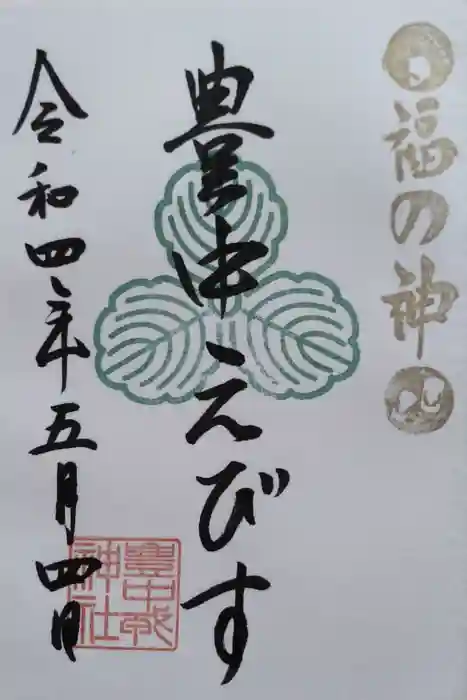 福の神
豊中えびす
令和四年五月四日
豊中戎
神社